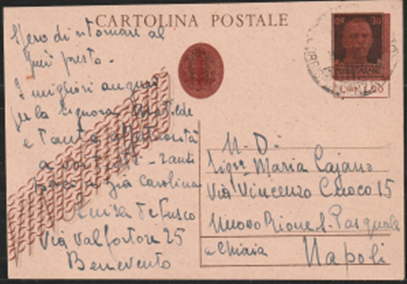 CARTOLINA POSTALE
Spero di ritornare al
più presto.
I migliori auguri
per la signora Matilde
e tanta affettuosità
a tutti
zia Carolina
Luisa De Fusco
Via Valfortore 25
Benevento
N. D.
Sig.ra Maria Cajano
Via Vincenzo Cuoco 15
Nuovo Rione S. Pasquale
a Chiaia Napoli